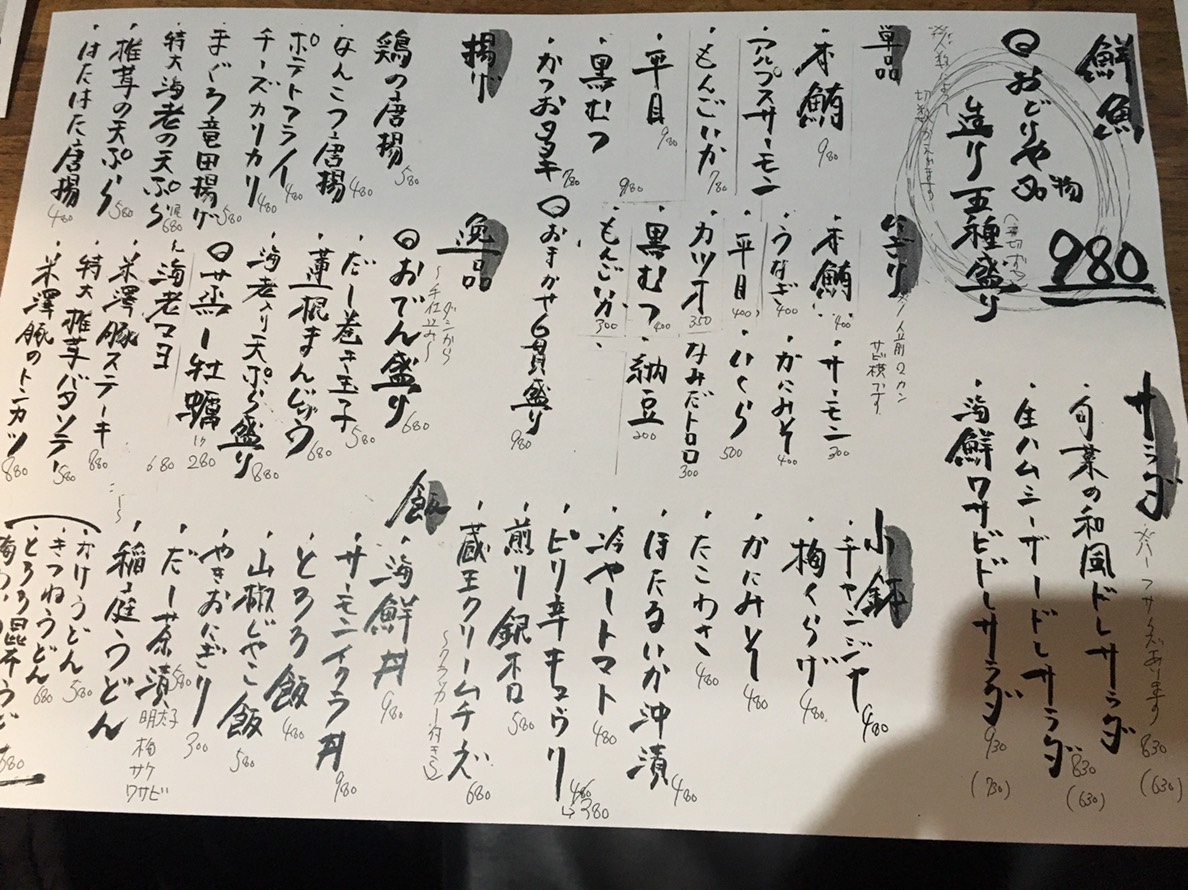 鮮魚
おどりや名物
造り五種盛り
(一切ずつ)
980
※人数によって
切数かえれます
単品
・本鮪 980
・アルプスサーモン
・もんごいか 780
・平目 980
・黒むつ 980
・かつおタタキ 780
にぎり
※1人前2カン
サビ横です
・本鮪 400
・サーモン 300
・うなぎ 400
・かにみそ 400
・平目 400
・いくら 500
・カツオ 350
・なみだトロロ 300
・黒むつ 400
・納豆 200
・もんごいか 300
おまかせ6貫盛り 980
サラダ
※ハーフサイズあります
・旬菜の和風ドレサラダ 830 (630)
・生ハムシーザードレサラダ 830 (630)
・海鮮ワサビドレサラダ 930 (730)
揚げ
鶏の唐揚 580
・なんこつ唐揚 480
・ポテトフライ 480
・チーズカリカリ 480
・まぐろ竜田揚げ 580
・特大海老の天ぷら 680
・椎茸の天ぷら 580
・はたはた唐揚 480
逸品
〜ダシから
手仕込み〜
おでん盛り 680
・だし巻き玉子 580
・蓮根まんじゅう 680
・海老入り天ぷら盛り 880
蒸し牡蠣 1ケ 280
・海老マヨ 680
・米澤豚ステーキ 880
・特大椎茸バタソテー 580
・米澤豚のトンカツ 880
小鉢
・チャンジャ 480
・梅くらげ 480
・かにみそ 480
・たこわさ 480
・ほたるいか沖漬 480
・冷やしトマト 480
・ピリ辛キュウリ 480→380
・煎り銀杏 580
・蔵王クリームチーズ 680
〜クラッカー付き〜
飯
・海鮮丼 980
・サーモンイクラ丼 980
・とろろ飯 480
・山椒じゃこ飯 580
・やきおにぎり 300
・だし茶漬 580
明太子
梅
サケ
ワサビ
・稲庭うどん
・かけうどん 580
・きつねうどん 680
・とろろ昆布うどん 680